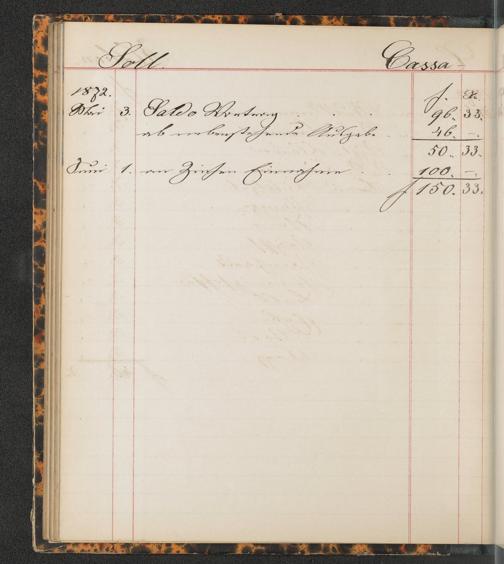 Soll. Cassa
1872. f. x.
Mai 3. Saldo Vortrag . . 96. 33.
ab nebenstehende Ausgabe . 46. –.
50. 33.
Juni 1. an Zinsen Einnahme . . 100. –.
f 150. 33.